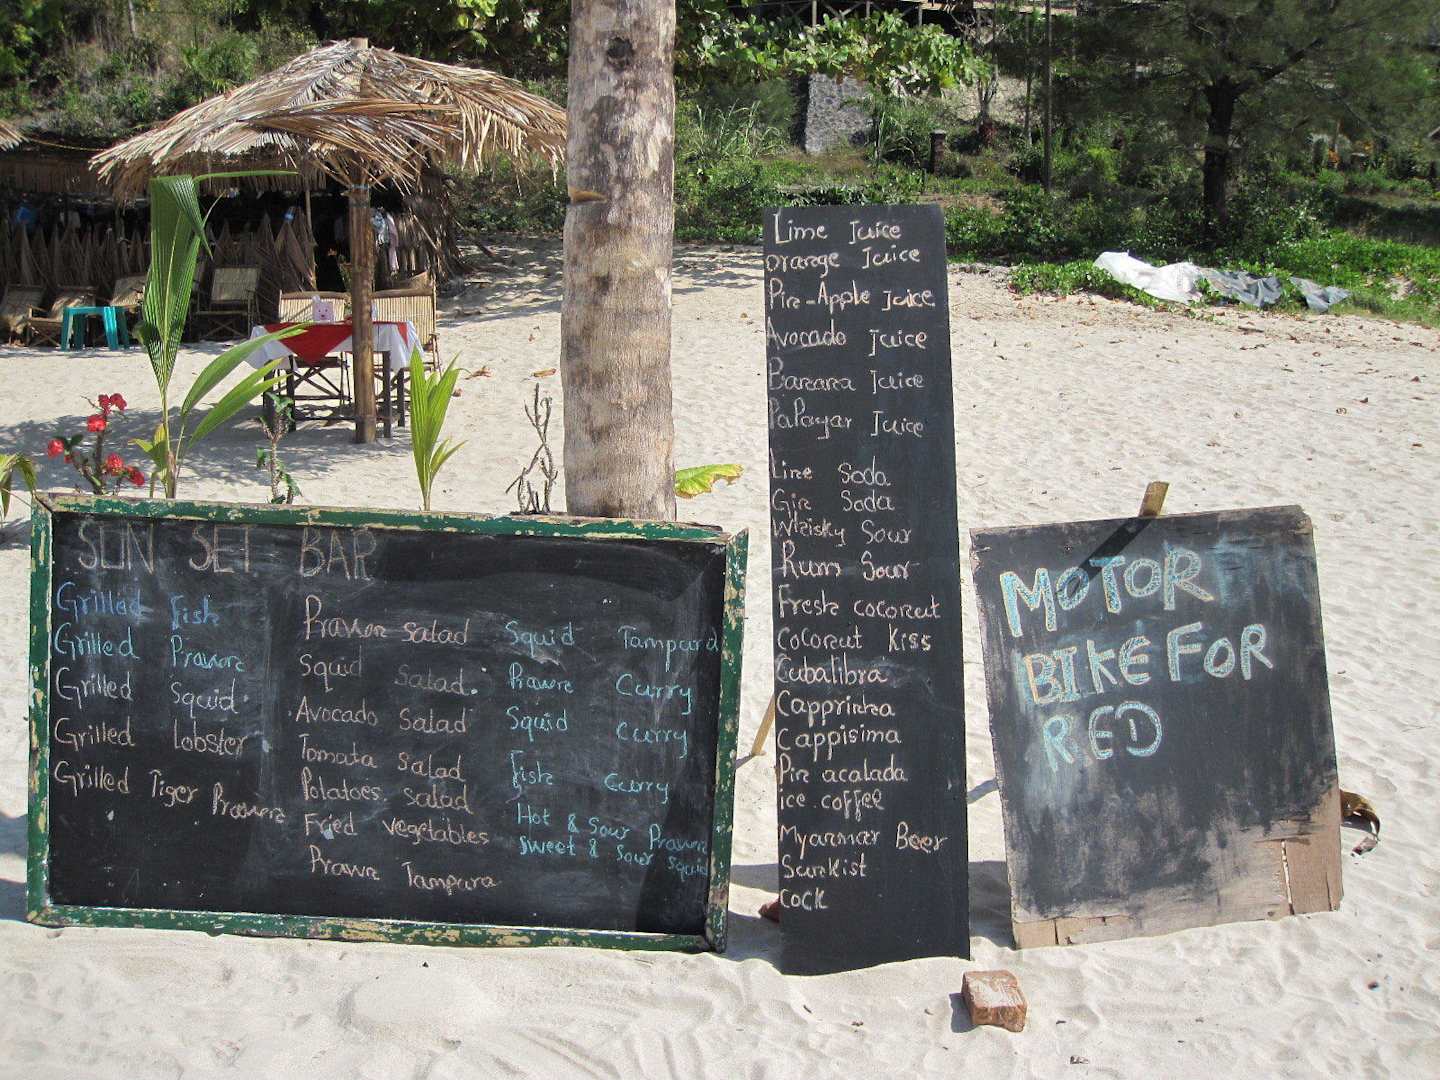 SUN SET BAR
Grilled Fish
Grilled Prawn
Grilled Squid
Grilled lobster
Grilled Tiger Prawn
Prawn Salad
Squid Salad
Avocado Salad
Tomata Salad
Potatoes Salad
Fried vegetables
Prawn Tampura
Squid Tampura
Prawn Curry
Squid Curry
Fish Curry
Hot & Sour Prawn
Sweet & Sour Squid
Lime Juice
orange Juice
Pin-Apple Juice
Avocado Juice
Banana Juice
PaPayar Juice
Lime Soda
Gin Soda
Whisky Sour
Rum Sour
Fresh coconut
Coconut Kiss
Cubalibra
Capprinha
Cappisima
Pin acalada
ice coffee
Myanmar Beer
Sunkist
Cock
MOTOR
BIKE FOR
RED